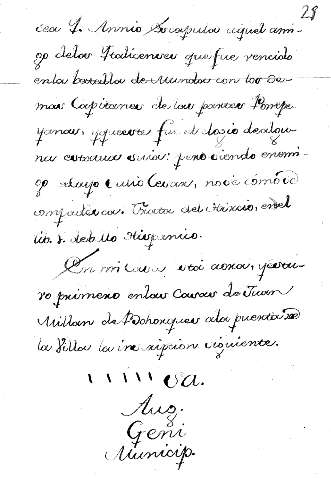 28
sea J. Annio Scapula aquel ami-
go de los Italicenses que fue vencido
en la batalla de Munda con los de-
mas Capitanes de las partes Pompe-
yanas, y que este fue el elogio de algu-
na estatua suia: pero siendo enemi-
go suyo Julio Cesar, no se cómo se
compadezca. Trata del Hircio, en el
lib. 8. de bello Hispanico.
En mi casa está aora, y estu-
vo primero en las Casas de Juan
Millan de Bohorques a la puerta de
la Villa la inscripcion siguiente.
IIIIIsa.
Aug.
Geni
Municip.